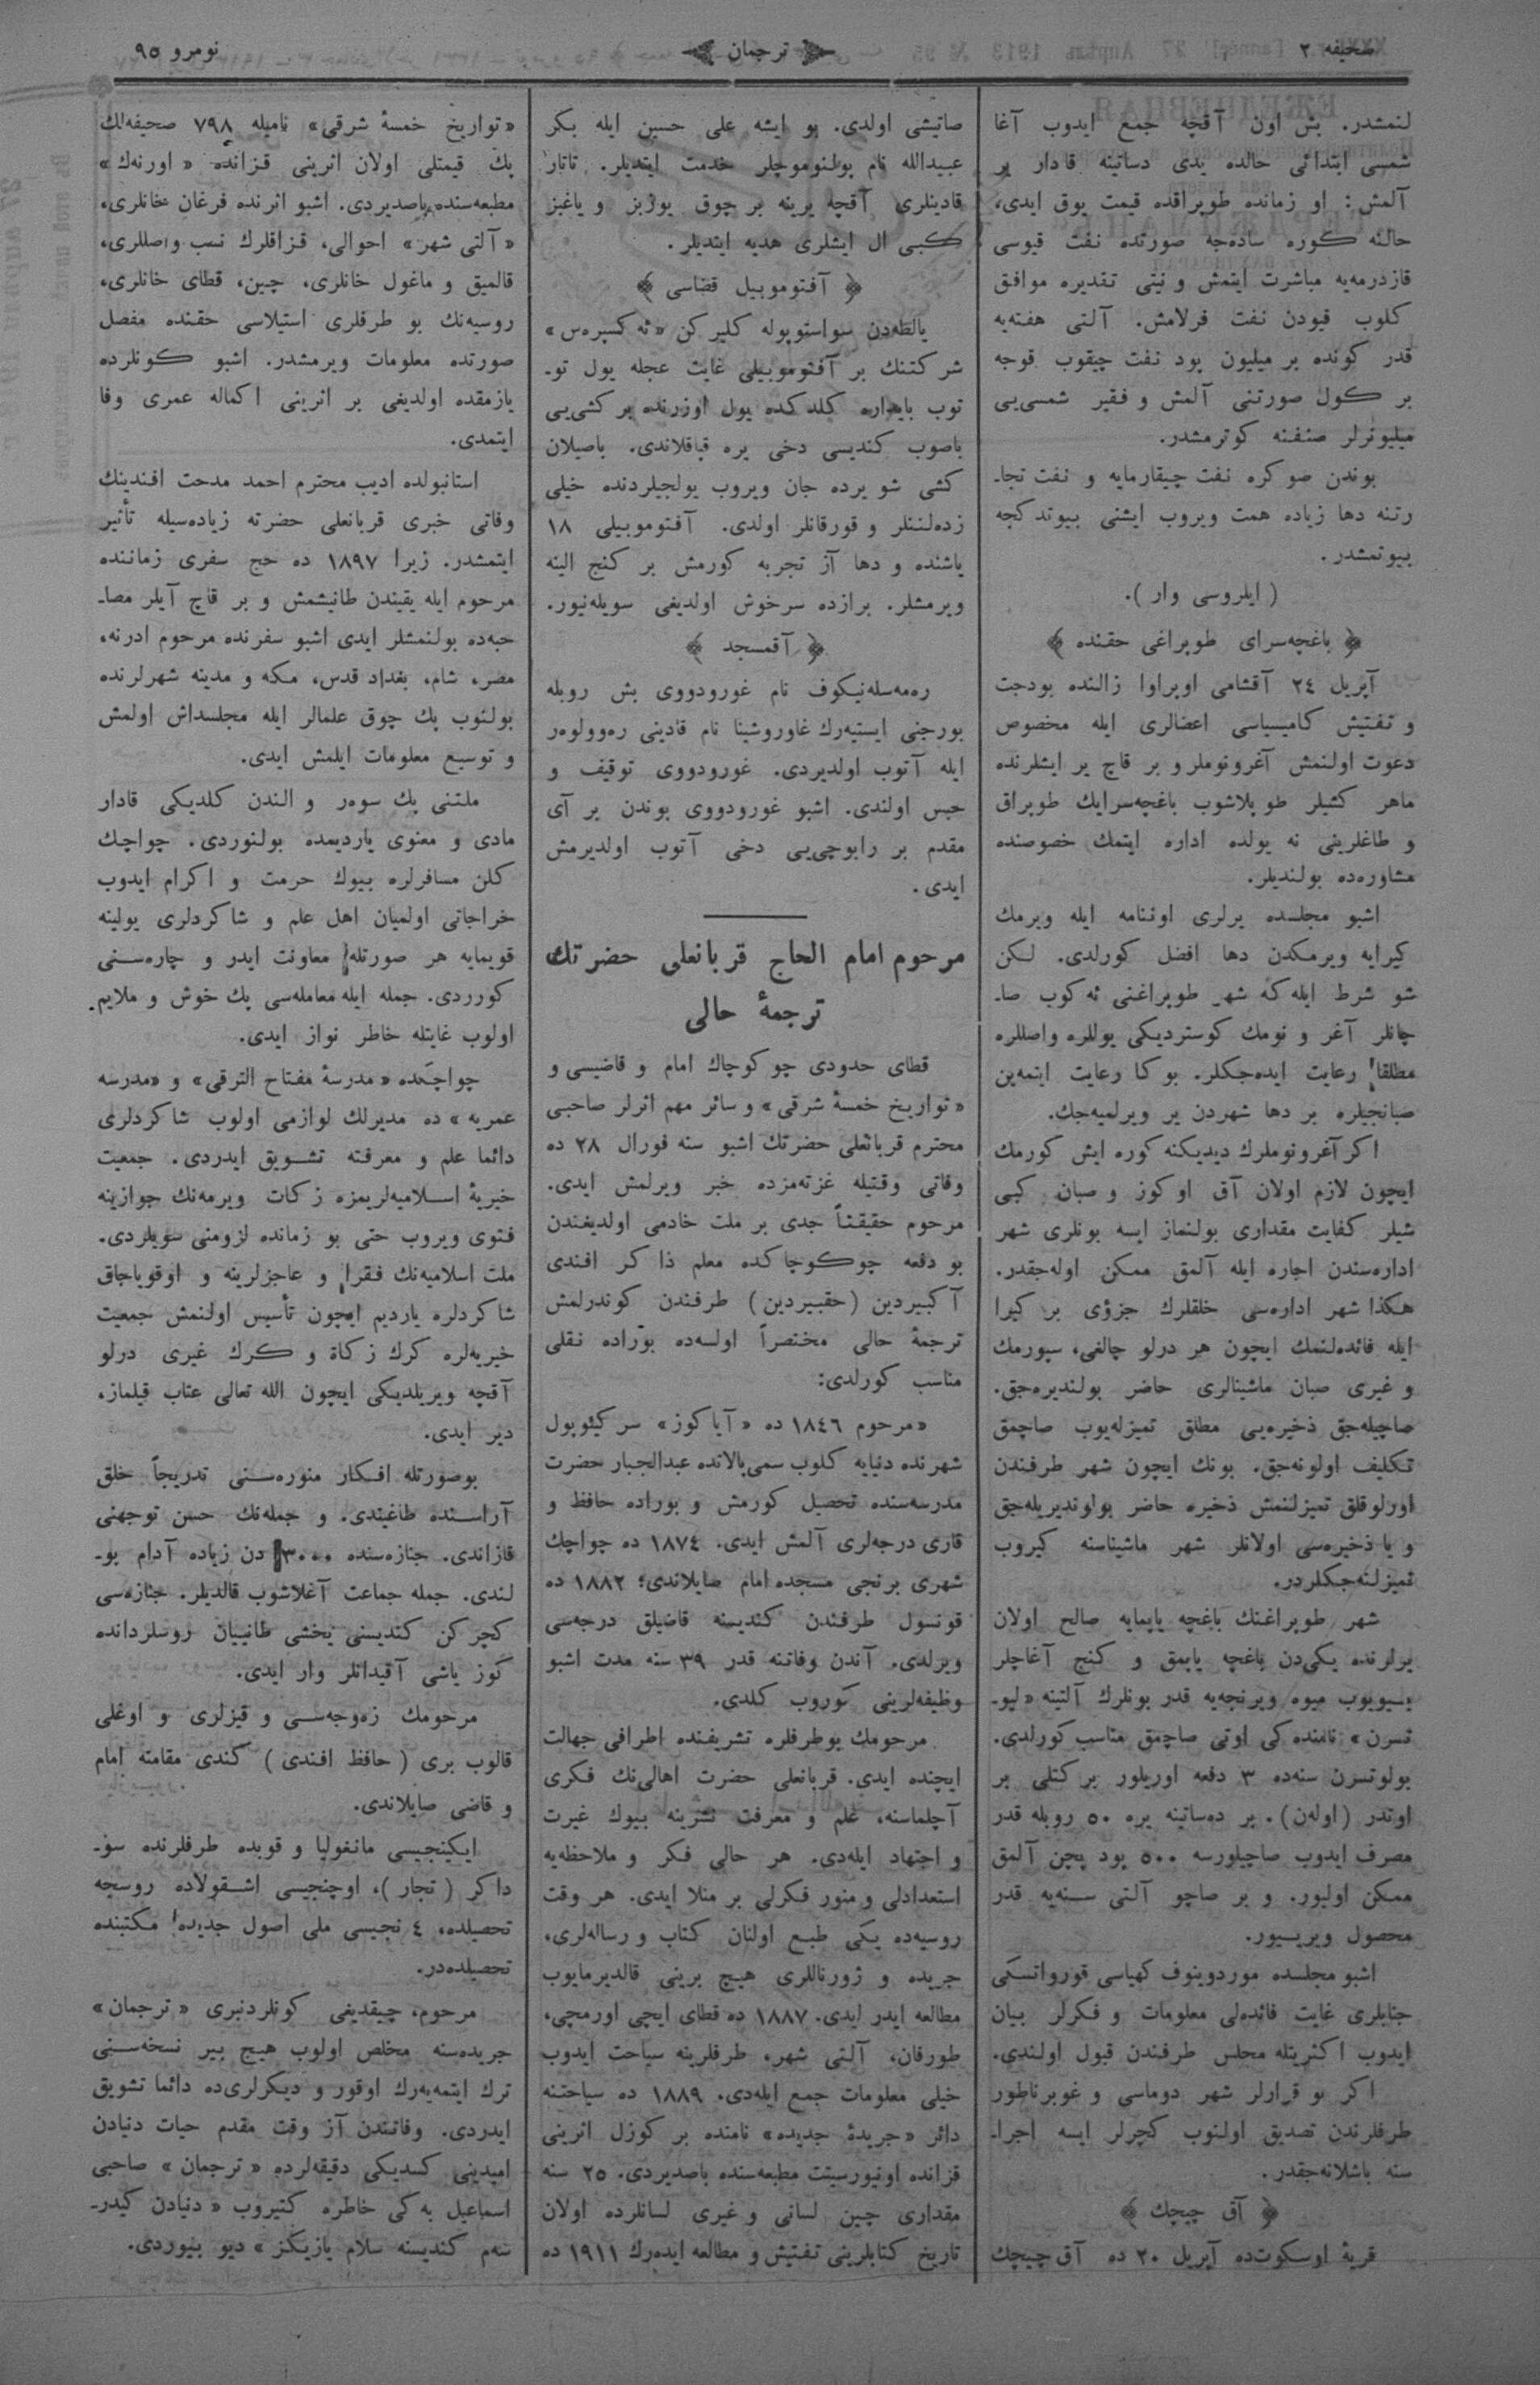 صحیفه ۲
ترجمان
نومرو ۹۵
لنمشدر. بش اون آقچه جمع ایدوب آغا
شمسی ابتدائی حالده یدی دساتینه قادار یر
آلمش: او زمانده طوپراقده قیمت یوق ایدی،
حالنه كوره ساده‌جه صورتده نفت قیوسی
قازدرمه‌یه مباشرت ایتمش و نیتی تقدیره موافق
كلوب قیودن نفت فرلامش. آلتی هفته‌یه
قدر كونده بر میلیون پود نفت چیقوب قوجه
بر كول صورتنی آلمش و فقیر شمسی‌یی
میلیونرلر صنفنه كوترمشدر.
بوندن صوكره نفت چیقارمایه و نفت تجا-
رتنه دها زیاده همت ویروب ایشنی بیوتدكجه
بیوتمشدر.
(ایلروسی وار).
﴿ باغچه‌سرای طوپراغی حقنده ﴾
آپریل ۲٤ آقشامی اوپراوا زالنده بودجت
و تفتیش كامیسیاسی اعضالری ایله مخصوص
دعوت اولنمش آغرونوملر و بر قاچ یر ایشلرنده
ماهر كشیلر طوپلاشوب باغچه‌سرایك طوپراق
و طاغلرینی نه یولده اداره ایتمك خصوصنده
مشاوره‌ده بولندیلر.
اشبو مجلسده یرلری اوننامه ایله ویرمك
كیرایه ویرمكدن دها افضل كورلدی. لكن
شو شرط ایله كه شهر طوپراغنی ئه‌كوب صا-
چانلر آغرونومك كوستردیكی یوللره واصللره
مطلقا رعایت ایده‌جكلر. بوكا رعایت ایتمه‌ین
صبانجیلره بر دها شهردن یر ویرلمیه‌جك.
اكر آغرونوملرك دیدیكنه كوره ایش كورمك
ایچون لازم اولان آق اوكوز و صبان كبی
شیلر كفایت مقداری بولنماز ایسه بونلری شهر
اداره‌سندن اجاره ایله آلمق ممكن اوله‌جقدر.
هكذا شهر اداره‌سی خلقلرك جزؤی بر كیرا
ایله فائده‌لنمك ایچون هر درلو چالغی، سپورمك
و غیری صبان ماشینالری حاضر بولندیره‌جق.
صاچیله‌جق ذخیره‌یی مطلق تمیزله‌یوب صاچمق
تكلیف اولونه‌جق. بونك ایچون شهر طرفندن
اورلوقلق تمیزلنمش ذخیره حاضر بولوندیریله‌جق
و یا ذخیره‌سی اولانلر شهر ماشیناسنه كیروب
تمیزلنه‌جكلردر.
شهر طوپراغنك باغچه یاپمایه صالح اولان
یرلرنده یكی‌دن باغچه یاپمق و كنج آغاچلر
بیویوب میوه ویرنجه‌یه قدر بونلرك آلتینه «لیو-
تسرن» نامنده كی اوتی صاچمق مناسب كورلدی.
بولوتسرن سنه‌ده ۳ دفعه اوریلور بركتلی بر
اوتدر (اوله‌ن). بر ده‌ساتینه یره ۵۰ روبله قدر
مصرف ایدوب صاچیلورسه ۵۰۰ پود پچن آلمق
ممكن اولیور. و بر صاچو آلتی سنه‌یه قدر
محصول ویریـیور.
اشبو مجلسده موردوینوف كهیاسی قورواتسكی
جنابلری غایت فائده‌لی معلومات و فكرلر بیان
ایدوب اكثریتله مجلس طرفندن قبول اولندی.
اكر بو قرارلر شهر دوماسی و غوبرناطور
طرفلرندن تصدیق اولنوب كچرلر ایسه اجرا-
سنه باشلانه‌جقدر.
﴿ آق چیچك ﴾
قریۀ اوسكوت‌ده آپریل ۲۰ ده آق چیچك
صاتیشی اولدی. بو ایشه علی حسین ایله بكر
عبیدالله نام پولنوموچلر خدمت ایتدیلر. تاتار
قادینلری آقچه یرینه بر چوق یوزبز و یاغبز
كبی ال ایشلری هدیه ایتدیلر.
﴿ آفتوموبیل قضاسی ﴾
یالطه‌دن سواستوپوله كلیركن «ئه‌كسپره‌س»
شركتنك بر آفتوموبیلی غایت عجله یول تو-
توب بایداره كلدكده یول اوزرنده بر كشی‌یی
باصوب كندیسی دخی یره قپاقلاندی. باصیلان
كشی شو یرده جان ویروب یولجیلردنده خیلی
زده‌لننلر و قورقانلر اولدی. آفتوموبیلی ۱۸
یاشنده و دها آز تجربه كورمش بر كنج الینه
ویرمشلر. برازده سرخوش اولدیغی سویله‌نیور.
﴿ آقمسجد ﴾
ره‌مه‌سله‌نیكوف نام غورودووی بش روبله
بورجنی ایستیه‌رك غاوروشینا نام قادینی ره‌وولوه‌ر
ایله آتوب اولدیردی. غورودووی توقیف و
حبس اولندی. اشبو غورودووی بوندن بر آی
مقدم بر رابوچی‌یی دخی آتوب اولدیرمش
ایدی.
مرحوم امام الحاج قربانعلی حضرتك
ترجمۀ حالی
قطای حدودی چوكوچاك امام و قاضیسی و
«تواریخ خمسۀ شرقی» و سائر مهم اثرلر صاحبی
محترم قربانعلی حضرتك اشبو سنه فورال ۲۸ ده
وفاتی وقتیله غزته‌مزده خبر ویرلمش ایدی.
مرحوم حقیقتاً جدی بر ملت خادمی اولدیغندن
بو دفعه چوكوچاكده معلم ذاكر افندی
آكبیردین (حقبیردین) طرفندن كوندرلمش
ترجمۀ حالی مختصراً اولسه‌ده بوراده نقلی
مناسب كورلدی:
«مرحوم ۱۸٤٦ ده «آیاكوز» سركیئوپول
شهرنده دنیایه كلوب سمی‌پالاتده عبدالجبار حضرت
مدرسه‌سنده تحصیل كورمش و بوراده حافظ و
قاری درجه‌لری آلمش ایدی. ۱۸۷٤ ده چواچك
شهری برنجی مسجده امام صایلاندی؛ ۱۸۸۲ ده
قونسول طرفندن كندیسنه قاضیلق درجه‌سی
ویرلدی. آندن وفاتنه قدر ۳۹ سنه مدت اشبو
وظیفه‌لرینی كوروب كلدی.
مرحومك بوطرفلره تشریفنده اطرافی جهالت
ایچنده ایدی. قربانعلی حضرت اهالی‌نك فكری
آچلماسنه، علم و معرفت نشرینه بیوك غیرت
و اجتهاد ایله‌دی. هر حالی فكر و ملاحظه‌یه
استعدادلی و منور فكرلی بر منلا ایدی. هر وقت
روسیه‌ده یكی طبع اولنان كتاب و رساله‌لری،
جریده و ژورناللری هیچ برینی قالدیرمایوب
مطالعه ایدر ایدی. ۱۸۸۷ ده قطای ایچی اورمچی،
طورفان، آلتی شهر، طرفلرینه سیاحت ایدوب
خیلی معلومات جمع ایله‌دی. ۱۸۸۹ ده سیاحتنه
دائر «جریدۀ جدیده» نامنده بر كوزل اثرینی
قزانده اونیورسیتت مطبعه‌سنده باصدیردی. ۲۵ سنه
مقداری چین لسانی و غیری لسانلرده اولان
تاریخ كتابلرینی تفتیش و مطالعه ایده‌رك ۱۹۱۱ ده
«تواریخ خمسۀ شرقی» نامیله ۷۹۸ صحیفه‌لك
پك قیمتلی اولان اثرینی قزانده «اورنه‌ك»
مطبعه‌سنده باصدیردی. اشبو اثرنده فرغان خانلری،
«آلتی شهر» احوالی، قزاقلرك نسب واصللری،
قالمیق و ماغول خانلری، چین، قطای خانلری،
روسیه‌نك بو طرفلری استیلاسی حقنده مفصل
صورتده معلومات ویرمشدر. اشبو كونلرده
یازمقده اولدیغی بر اثرینی اكماله عمری وفا
ایتمدی.
استانبولده ادیب محترم احمد مدحت افندینك
وفاتی خبری قربانعلی حضرته زیاده‌سیله تأثیر
ایتمشدر. زیرا ۱۸۹۷ ده حج سفری زماننده
مرحوم ایله یقیندن طانیشمش و بر قاچ آیلر مصا-
حبه‌ده بولنمشلر ایدی اشبو سفرنده مرحوم ادرنه،
مصر، شام، بغداد قدس، مكه و مدینه شهرلرنده
بولنوب پك چوق علمالر ایله مجلسداش اولمش
و توسیع معلومات ایلمش ایدی.
ملتنی پك سوه‌ر و الندن كلدیكی قادار
مادی و معنوی یاردیمده بولنوردی. چواچك
كلن مسافرلره بیوك حرمت و اكرام ایدوب
خراجاتی اولمیان اهل علم و شاكردلری یولینه
قویمایه هر صورتله معاونت ایدر و چاره‌سنی
كورردی. جمله ایله معامله‌سی پك خوش و ملایم
اولوب غایتله خاطر نواز ایدی.
چواچكده «مدرسۀ مفتاح الترقی» و «مدرسه
عمریه» ده مدیرلك لوازمی اولوب شاكردلری
دائما علم و معرفته تشویق ایدردی. جمعیت
خیریۀ اسلامیه‌لریمزه زكات ویرمه‌نك جوازینه
فتوی ویروب حتی بو زمانده لزومنی سویلردی.
ملت اسلامیه‌نك فقرا و عاجزلرینه و اوقویاجاق
شاكردلره یاردیم ایچون تأسیس اولنمش جمعیت
خیریه‌لره كرك زكاة و كرك غیری درلو
آقچه ویریلدیكی ایچون الله تعالی عتاب قیلماز،
دیر ایدی.
بوصورتله افكار منوره‌سنی تدریجاً خلق
آراسنده طاغیتدی. و جمله‌نك حسن توجهنی
قازاندی. جنازه‌سنده ۳۰۰۰ دن زیاده آدام بو-
لندی. جمله جماعت آغلاشوب قالدیلر. جنازه‌سی
كچركن كندیسنی یخشی طانییان روسلردانده
كوز یاشی آقیدانلر وار ایدی.
مرحومك زه‌وجه‌سی و قیزلری و اوغلی
قالوب بری (حافظ افندی) كندی مقامنه امام
و قاضی صایلاندی.
ایكینجیسی مانغولیا و قوبده طرفلرنده سو-
داكر (تجار)، اوچنجیسی اشقولاده روسجه
تحصیلده، ٤ نجیسی ملی اصول جدیده مكتبنده
تحصیلده‌در.
مرحوم، چیقدیغی كونلردنبری «ترجمان»
جریده‌سنه مخلص اولوب هیچ بیر نسخه‌سنی
ترك ایتمه‌یه‌رك اوقور و دیكرلری‌ده دائما تشویق
ایدردی. وفاتندن آز وقت مقدم حیات دنیادن
امیدینی كسدیكی دقیقه‌لرده «ترجمان» صاحبی
اسماعیل به‌كی خاطره كتیروب «دنیادن كیدر-
سه‌م كندیسنه سلام یازیكز» دیو بیوردی.